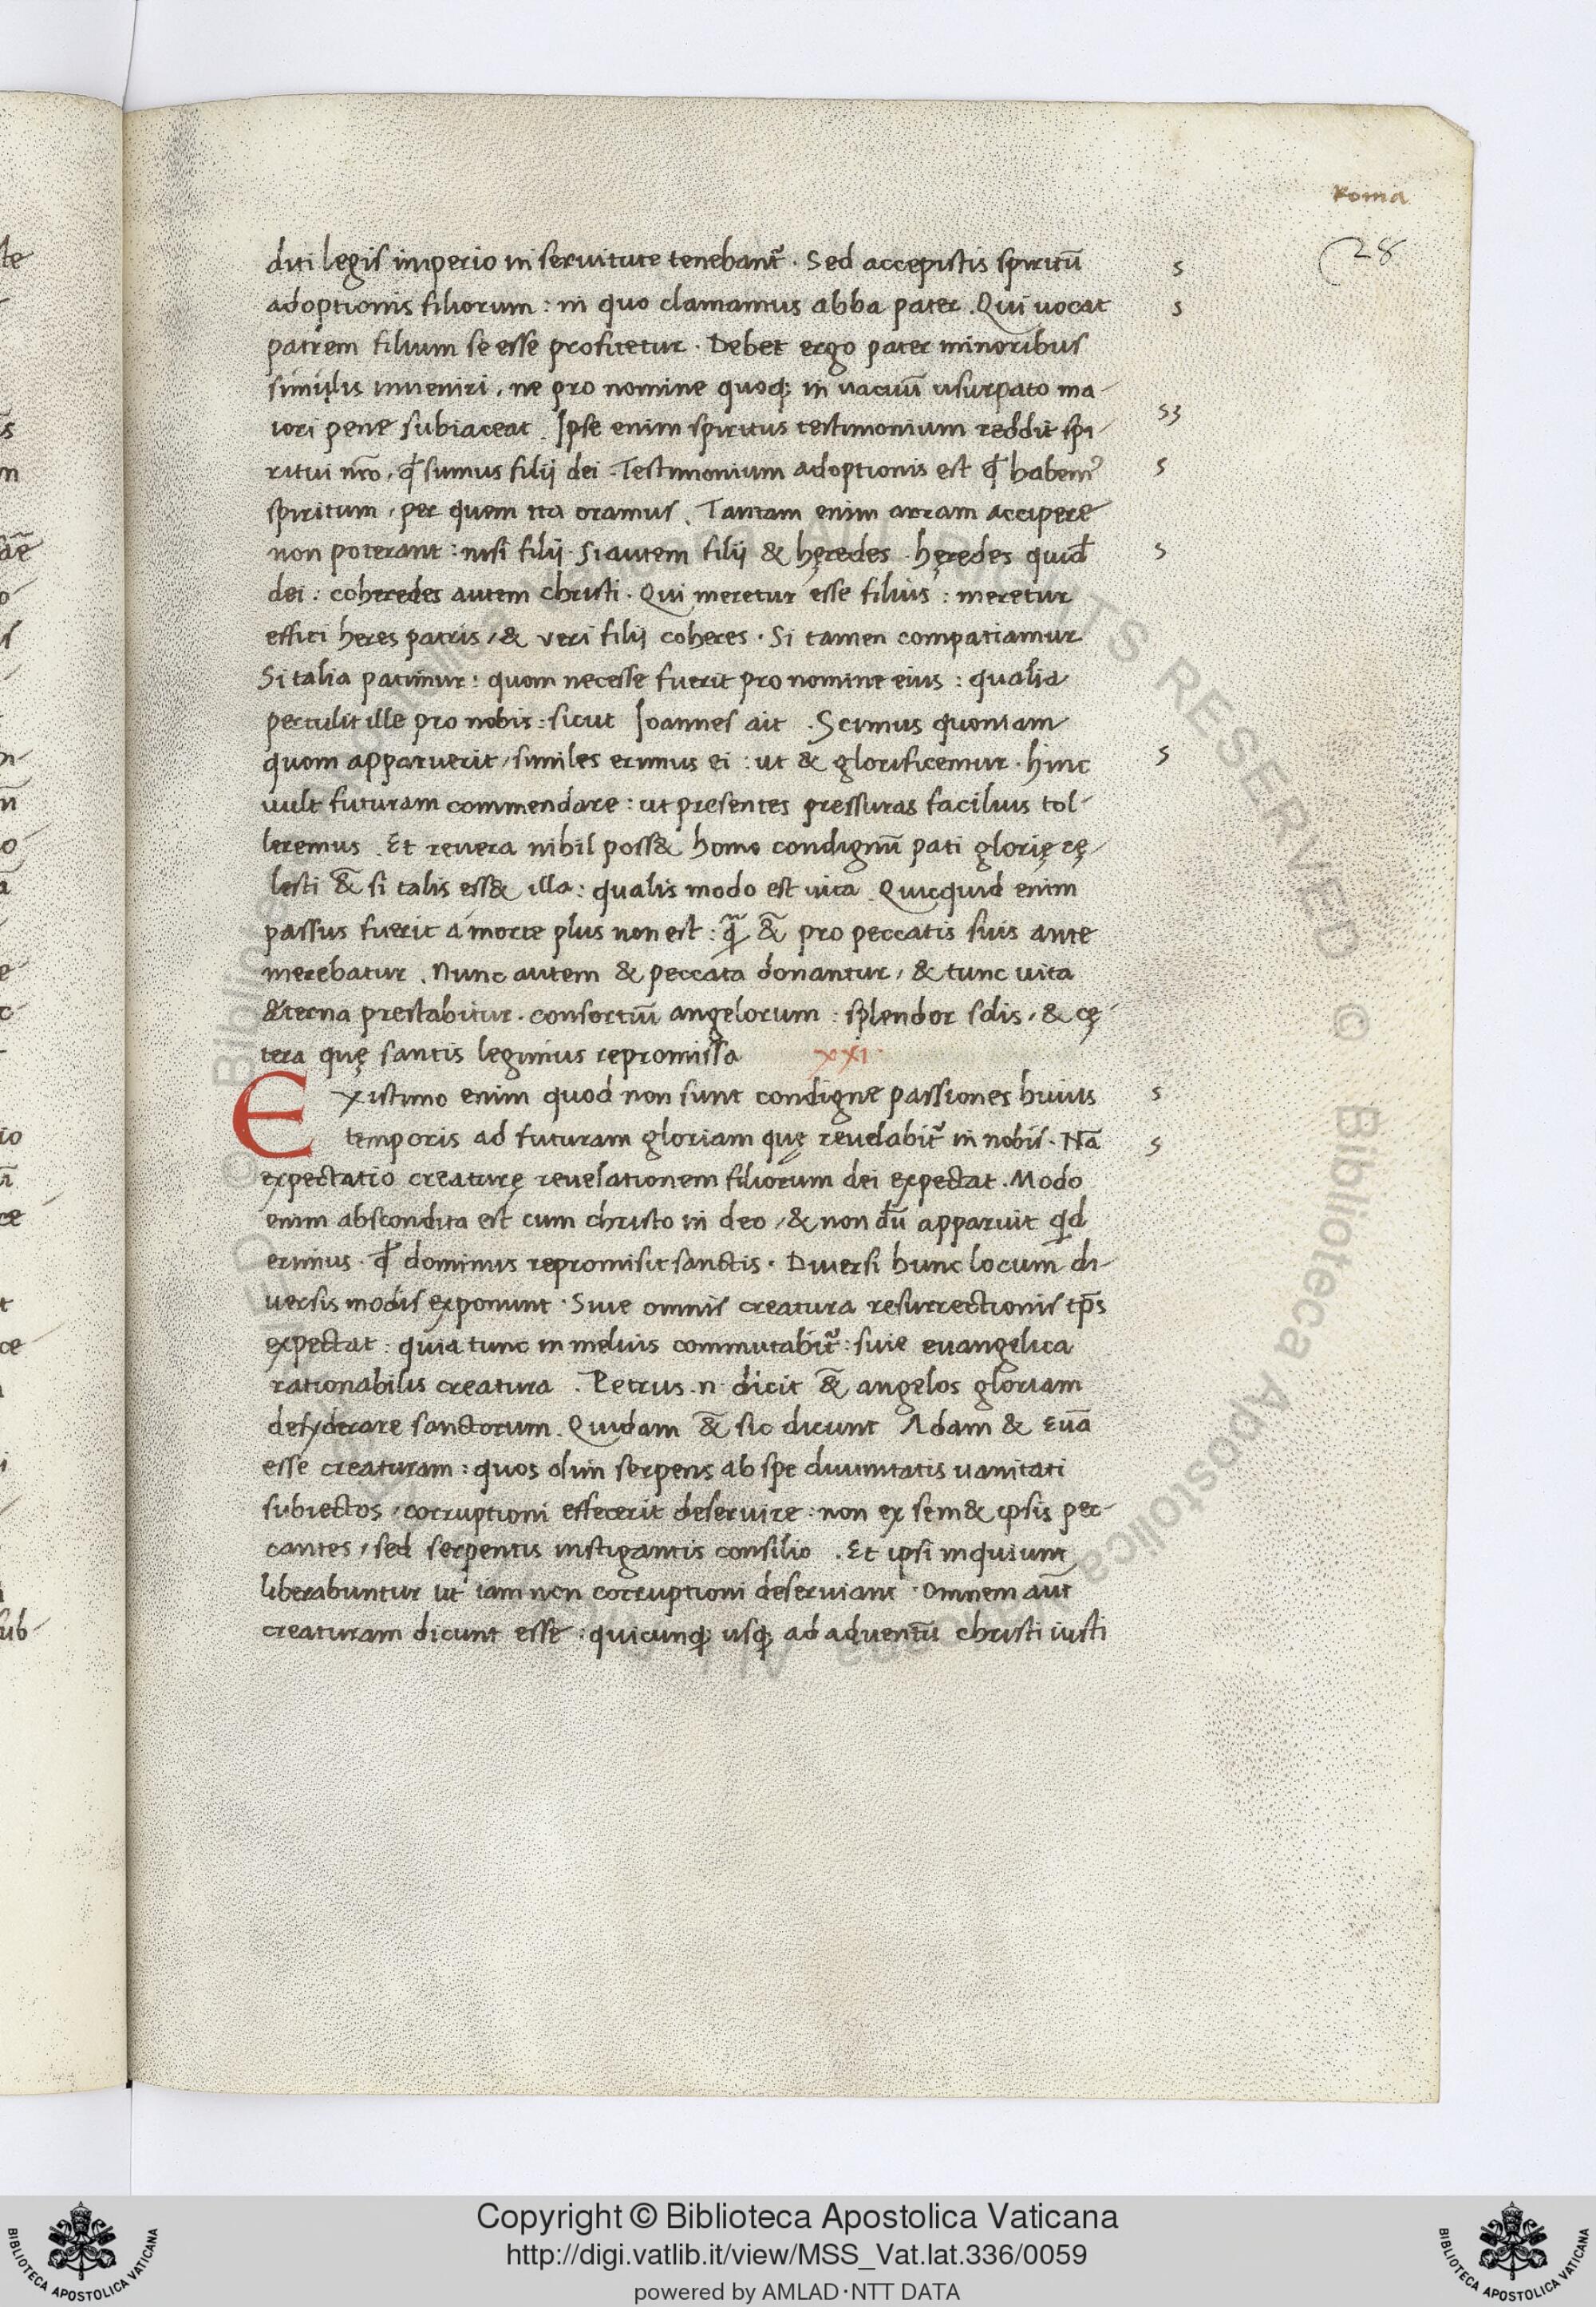 Roma
28
diti legis imperio in seruitute tenebant᷑ . Sed accepistis spiritū s
adoptionis filiorum : in quo clamamus abba pater . Qui uocat s
patrem filium se esse profitetur . Debet ergo pater minoribus
similis inueniri , ne pro nomine quoq; in uacuū usurpato ma-
iori pene subiaceat . Ipse enim spiritus testimonium reddit spi- s3
ritui nr̄o , qđ sumus filij dei . Testimonium adoptionis est qđ habem᷒ s
spiritum , per quem ita oramus . Tantam enim arram accipere
non poterant : nisi filij . Si autem filij & hęredes . hęredes quid̄ s
dei : coheredes autem christi . Qui meretur esse filius : meretur
effici heres patris , & veri filij coheres . Si tamen compatiamur
Si talia patimur : quom necesse fuerit pro nomine eius : qualia
pertulit ille pro nobis : sicut Ioannes ait . Scimus quoniam
quom apparuerit , similes erimus ei : ut & glorificemur . hinc s
uult futuram commendare : ut presentes pressuras facilius tol-
leremus . Et reuera nihil poss& homo condignū pati glorię cę-
lesti &̄ si talis ess& illa : qualis modo est uita . Quicquid enim
passus fuerit a morte plus non est : q̄ &̄ pro peccatis suis ante
merebatur . Nunc autem & peccata donantur , & tunc uita
&terna prestabitur . consortiū angelorum : splendor solis , & cę-
tera quę santis legimus repromissa xxi
Existimo enim quod non sunt condigne passiones huius s
temporis ad futuram gloriam quę reuelabit᷑ in nobis . Nā s
expectatio creaturę reuelationem filiorum dei expectat . Modo
enim abscondita est cum christo in deo , & non dū apparuit qd
erimus . qđ dominus repromisit sanctis . Diuersi hunc locum di-
uersis modis exponunt . Siue omnis creatura resurrectionis tp̄s
expectat : quia tunc in melius commutabit᷑ : siue euangelica
rationabilis creatura . Petrus .n. dicit &̄ angelos gloriam
desyderare sanctorum . Quidam &̄ sic dicunt Adam & Euā
esse creaturam : quos olim serpens ab spe diuinitatis uanitati
subiectos , corruptioni effecerit deseruire : non ex sem& ipsis pec-
cantes , sed serpentis instigantis consilio . Et ipsi inquiunt
liberabuntur ut iam non corruptioni deseruiant . Omnem aūt
creaturam dicunt esse : quicunq; usq; ad aduentū christi iusti
Copyright © Biblioteca Apostolica Vaticana
http://digi.vatlib.it/view/MSS_Vat.lat.336/0059
powered by AMLAD·NTT DATA